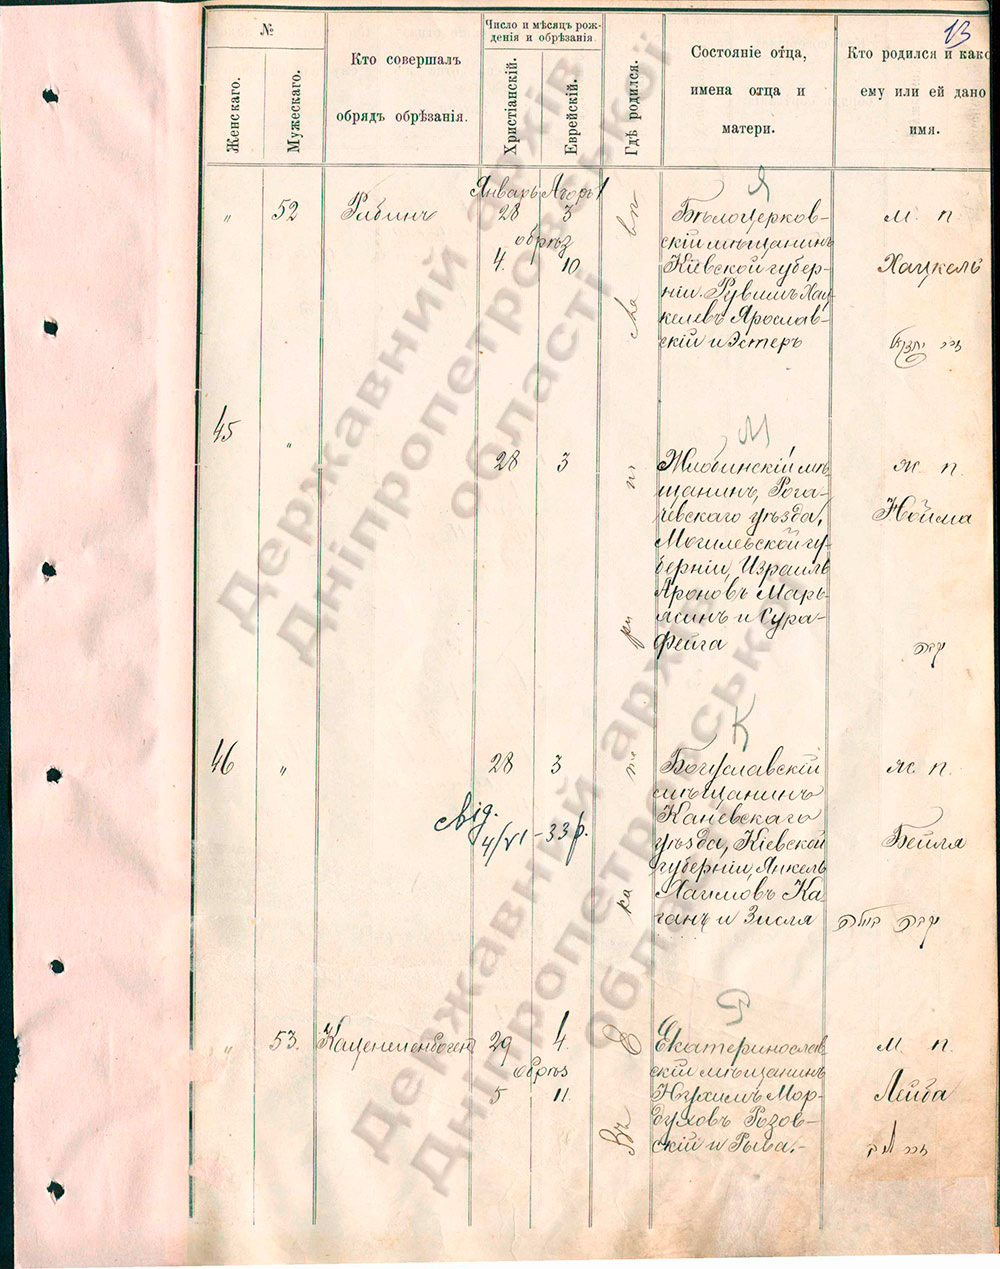 13
№
Женскаго.
Мужескаго.
Кто совершалъ
обрядъ обрѣзанія.
Число и мѣсяцъ рож-
денія и обрѣзанія.
Христіанскій.
Еврейскій.
Гдѣ родился.
Состояніе отца,
имена отца и
матери.
Кто родился и како
ему или ей дано
имя.
Я
Январь
„ 52 Рабинъ 28 3
обрѣз
4. 10
Бѣлоцерков-
скій мѣщанинъ
Кіевской губер-
ніи. Рувимъ Хац-
келевъ Ярослав-
скій и Эстеръ
м. п.
Хацкель
זכר
М
45 „ 28 3
Жлобинскій мѣ-
щанинъ, Рога-
чевскаго уѣзда,
Могилевской гу-
берніи, Израиль
Ароновъ Марь-
ясинъ и Сура-
Фейга
ж. п.
Нойма
К
46 „ 28 3
Від.
4/VI – 33 р.
Богуславскій
мѣщанинъ
Каневскаго
уѣзда, Кіевской
губерніи, Янкель
Хаимовъ Ка-
ганъ и Зисля
ж. п.
Бейля
Р
„ 53. Каценеленбоген 29 4.
обрѣз
5 11
Екатеринослав
скій мѣщанинъ
Нухимъ Мор-
духовъ Розов-
скій и Рыва.-
м. п.
Лейба
זכר
Въ Екатеринославѣ
Державний архів
Дніпропетровської
області
Державний архів
Дніпропетровської
області